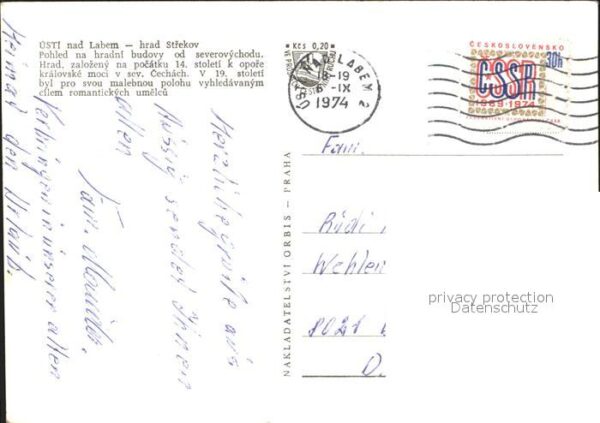 ÚSTÍ nad Labem — hrad Střekov
Pohled na hradní budovy od severovýchodu.
Hrad, založený na počátku 14. století k opoře
královské moci v sev. Čechách. V 19. století
byl pro svou malebnou polohu vyhledávaným
cílem romantických umělců
Kčs 0,20
ÚSTÍ NAD LABEM 2
18-19
6-IX
1974
ČESKOSLOVENSKO
30h
ČSSR
1969-1974
NAKLADATELSTVÍ ORBIS — PRAHA
Herzliche Grüße aus
Aussig sendet Ihnen
allen
Fam.
Verbringen in unserer alten
Heimat den Urlaub.
Fam.
Rüdi
Wehlen
D.
privacy protection
Datenschutz